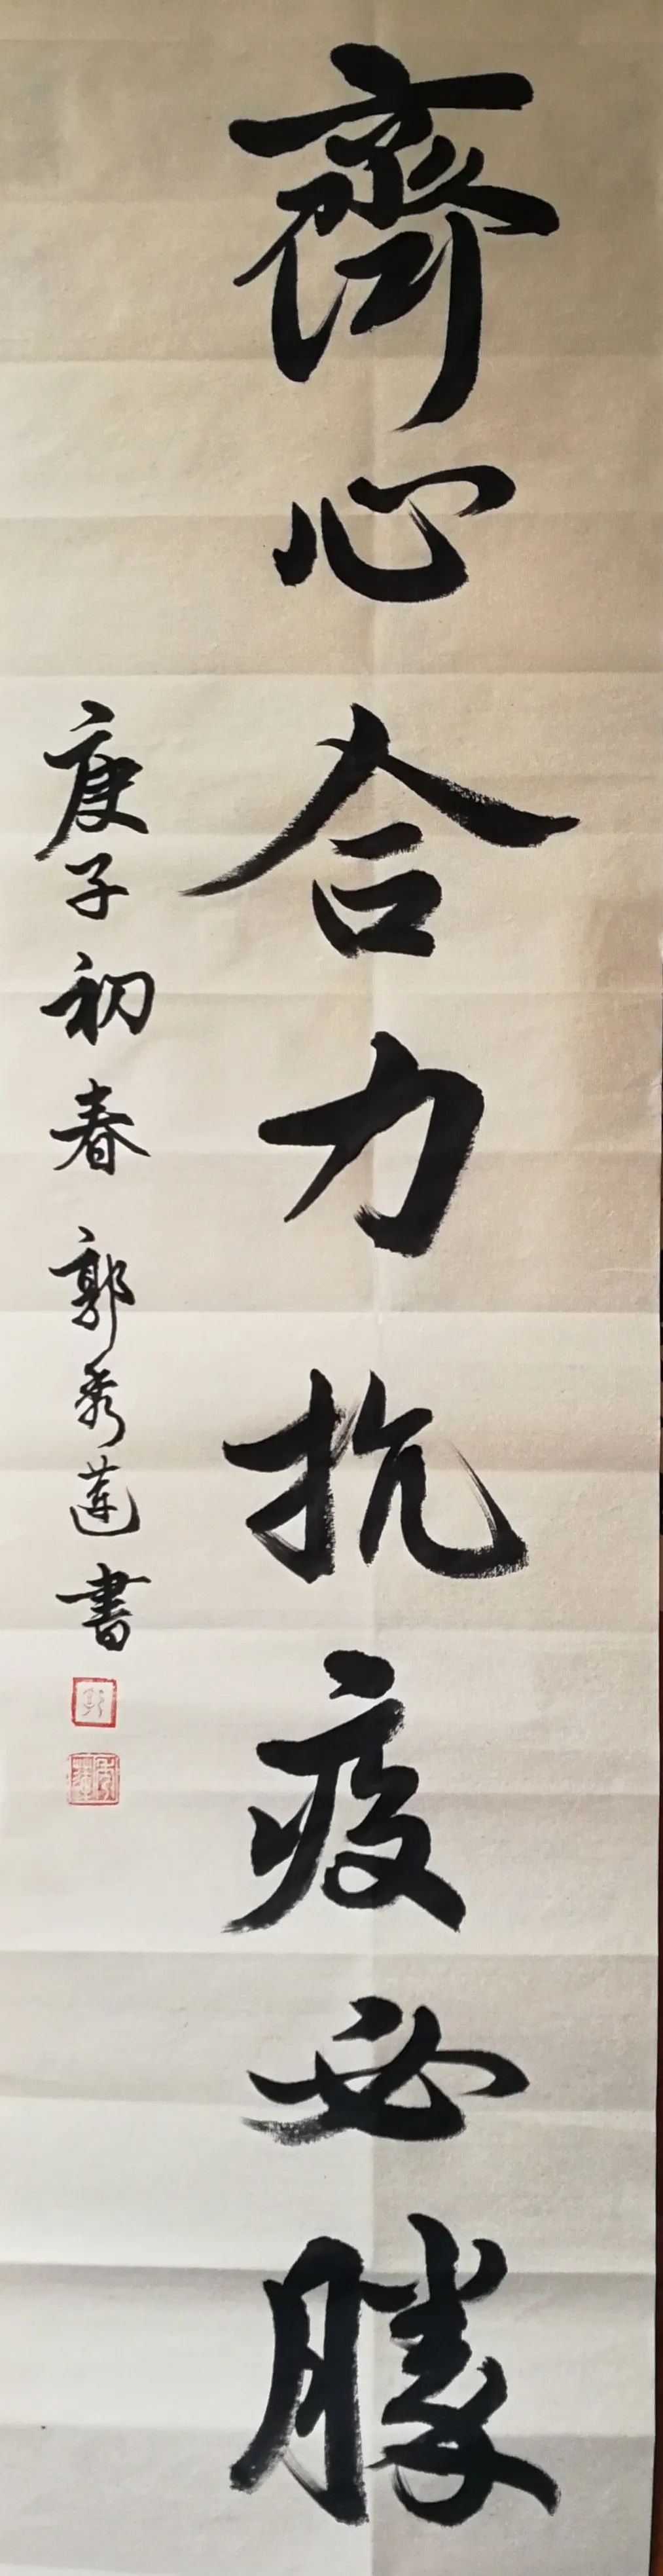 齊心合力抗疫必勝
庚子初春 郭秀蓮書